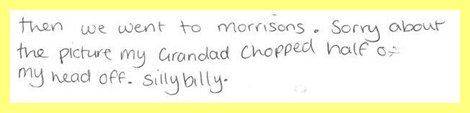 then we went to morrisons. Sorry about
the picture my Grandad chopped half of
my head off. Sillybilly.